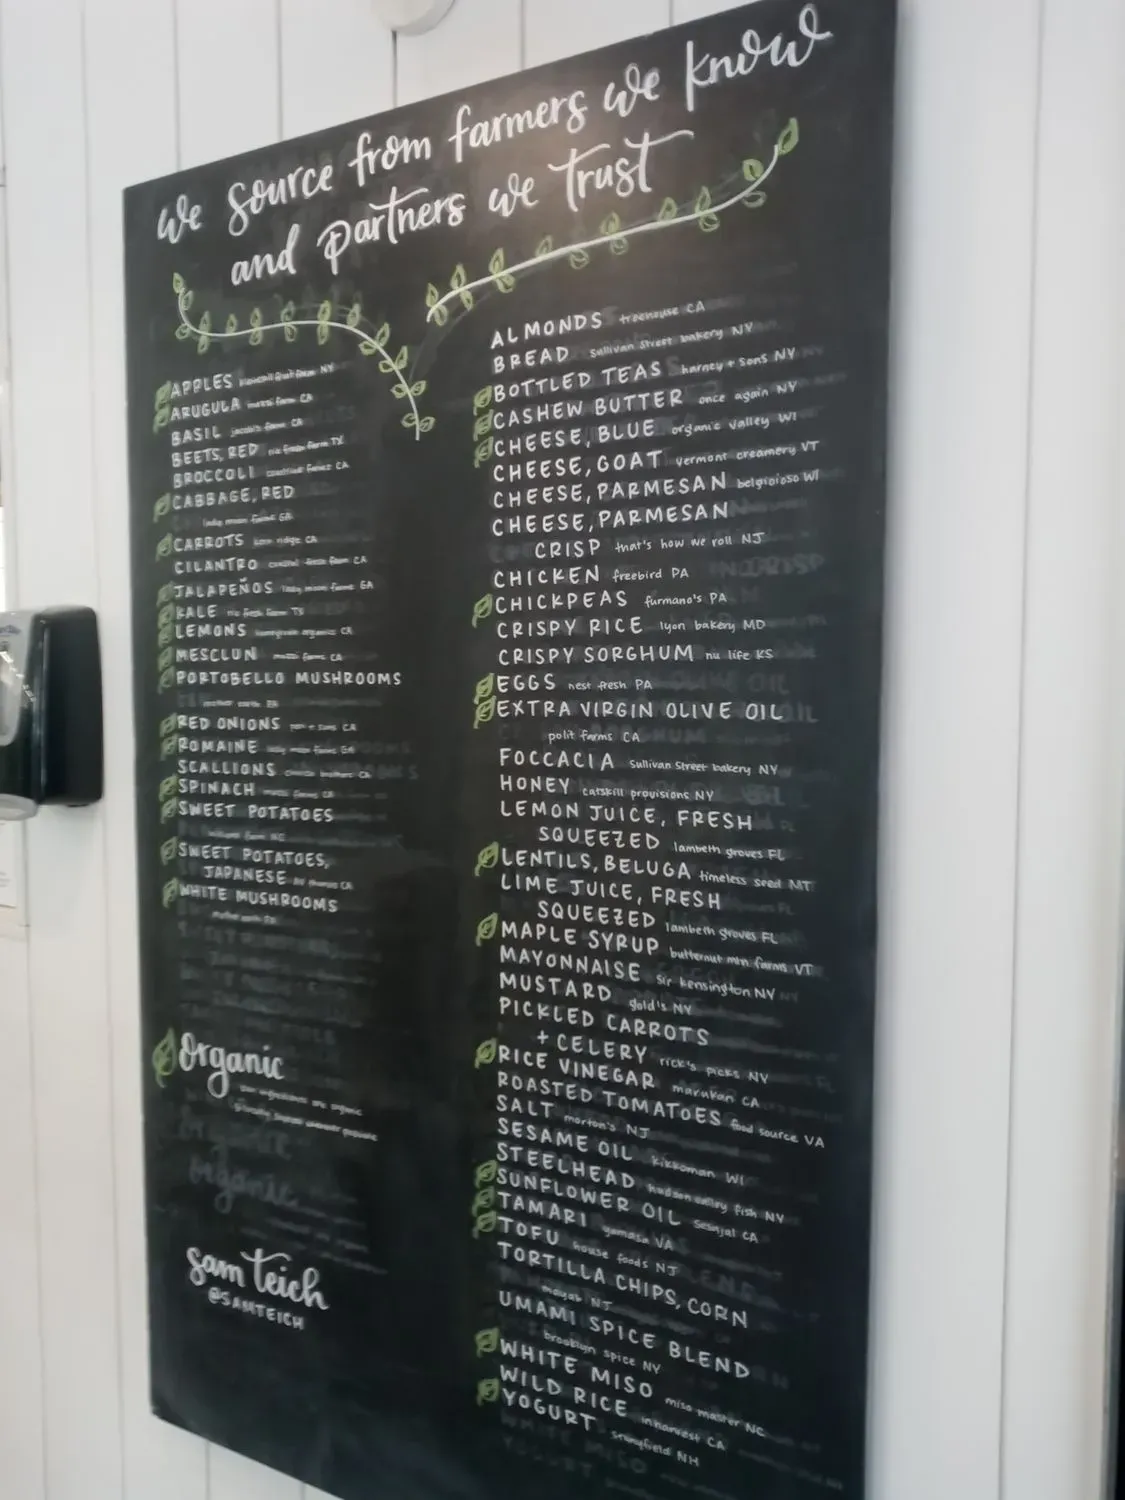 we source from farmers we know
and partners we trust
APPLES NY
ARUGULA CA
BASIL jacob's farm CA
BEETS, RED rio fresh farm TX
BROCCOLI CA
CABBAGE, RED
lady moon farms GA
CARROTS CA
CILANTRO CA
JALAPEÑOS lady moon farms GA
KALE rio fresh farm TX
LEMONS organics CA
MESCLUN CA
PORTOBELLO MUSHROOMS
mother earth PA
RED ONIONS CA
ROMAINE lady moon farms GA
SCALLIONS CA
SPINACH CA
SWEET POTATOES
NC
SWEET POTATOES,
JAPANESE CA
WHITE MUSHROOMS
organic
sam teich
@SAMTEICH
ALMONDS treehouse CA
BREAD sullivan street bakery NY
BOTTLED TEAS harney + sons NY
CASHEW BUTTER once again NY
CHEESE, BLUE organic valley WI
CHEESE, GOAT vermont creamery VT
CHEESE, PARMESAN belgioioso WI
CHEESE, PARMESAN
CRISP that's how we roll NJ
CHICKEN freebird PA
CHICKPEAS furmano's PA
CRISPY RICE lyon bakery MD
CRISPY SORGHUM nu life KS
EGGS nest fresh PA
EXTRA VIRGIN OLIVE OIL
polit farms CA
FOCCACIA sullivan street bakery NY
HONEY catskill provisions NY
LEMON JUICE, FRESH
SQUEEZED lambeth groves FL
LENTILS, BELUGA timeless seed MT
LIME JUICE, FRESH
SQUEEZED lambeth groves FL
MAPLE SYRUP butternut mtn farms VT
MAYONNAISE sir kensington NY
MUSTARD gold's NY
PICKLED CARROTS
+ CELERY rick's picks NY
RICE VINEGAR marukan CA
ROASTED TOMATOES food source VA
SALT morton's NJ
SESAME OIL kikkoman WI
STEELHEAD hudson valley fish NY
SUNFLOWER OIL sesajal CA
TAMARI yamasa VA
TOFU house foods NJ
TORTILLA CHIPS, CORN
mayas NJ
UMAMI SPICE BLEND
brooklyn spice NY
WHITE MISO miso master NC
WILD RICE inharvest CA
YOGURT stonyfield NH